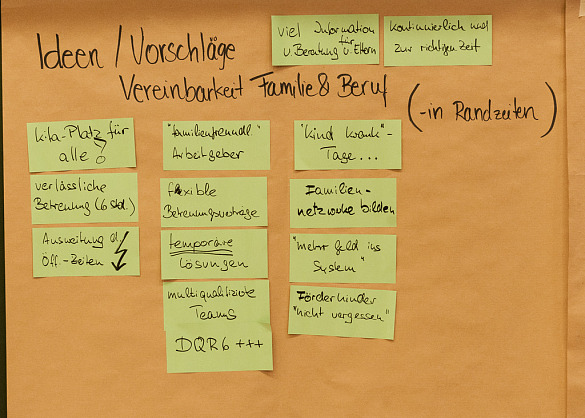 Ideen / Vorschläge
Vereinbarkeit Familie & Beruf
(-in Randzeiten)
viel Information
für
u. Beratung u. Eltern
kontinuierlich und
zur richtigen Zeit
kita-Platz für
alle!
verlässliche
Betreuung (6 Std.)
Ausweitung d.
Öff.-Zeiten
"familienfreundl."
Arbeitgeber
flexible
Betreuungsverträge
temporäre
Lösungen
multiqualifizierte
Teams
DQR6 +++
"Kind krank"-
Tage...
Familien-
netzwerke bilden
"mehr Geld ins
System"
Förderkinder
"nicht vergessen"